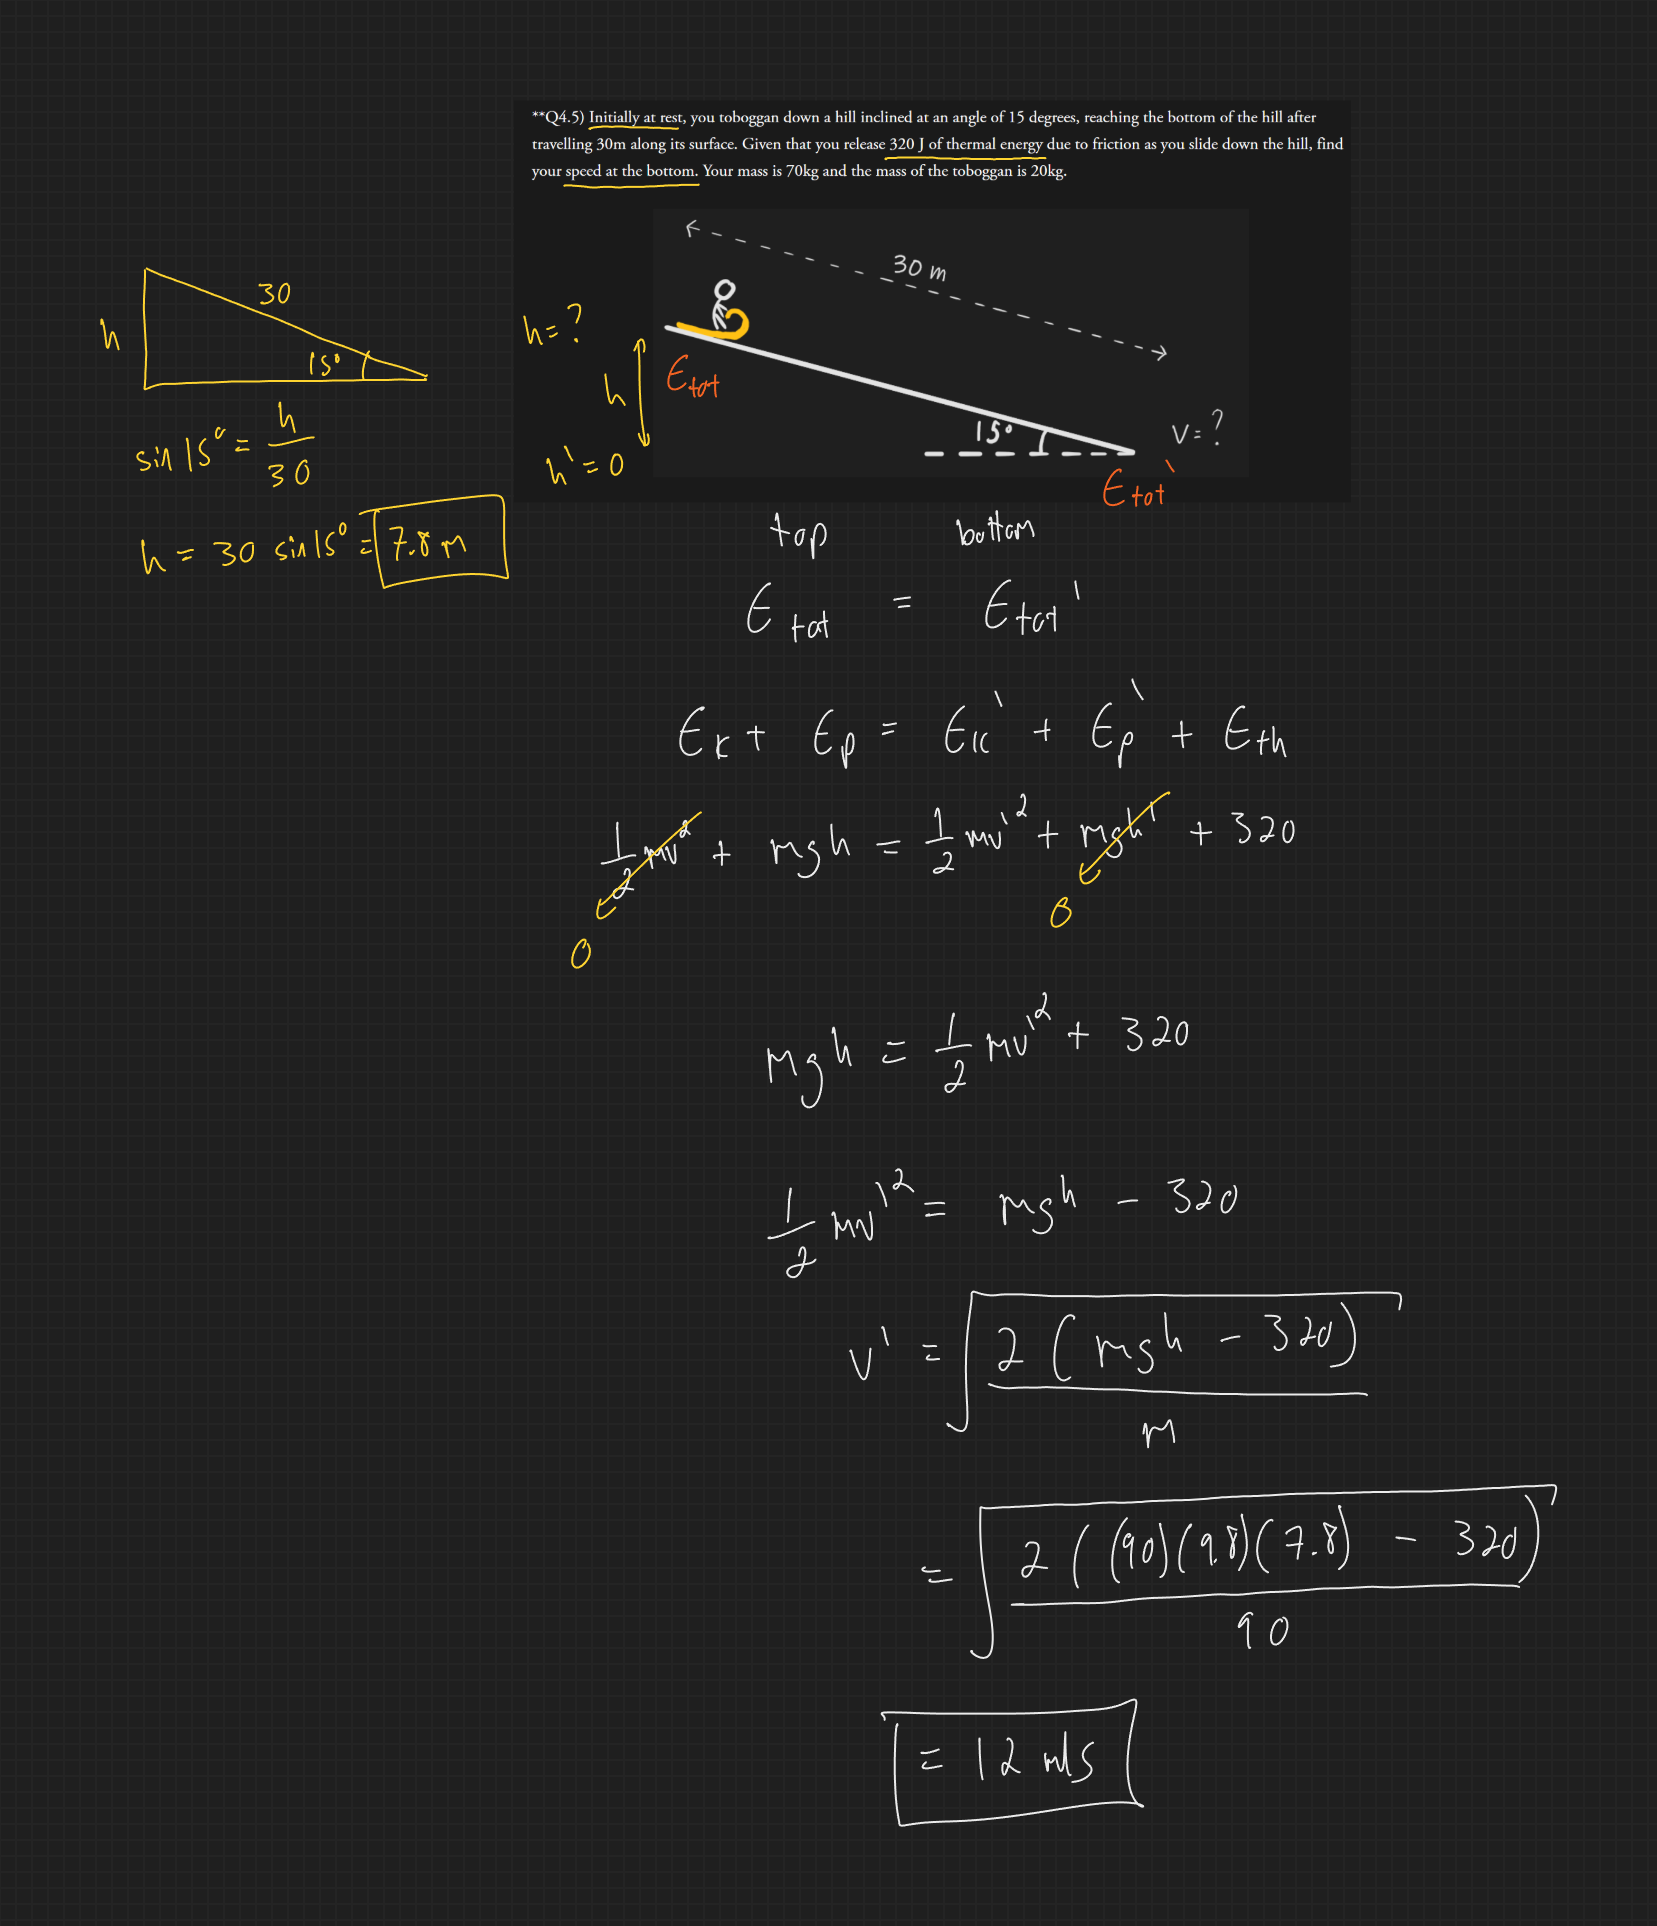 **Q4.5) Initially at rest, you toboggan down a hill inclined at an angle of 15 degrees, reaching the bottom of the hill after
travelling 30m along its surface. Given that you release 320 J of thermal energy due to friction as you slide down the hill, find
your speed at the bottom. Your mass is 70kg and the mass of the toboggan is 20kg.
30 m
h = ?
h
h' = 0
E_tot
15°
v = ?
E_tot'
30
h
15°
sin 15° = h/30
h = 30 sin 15° = 7.8 m
top bottom
E_tot = E_tot'
E_k + E_p = E_k' + E_p' + E_th
1/2 mv² + mgh = 1/2 mv'² + mgh' + 320
0
0
mgh = 1/2 mv'² + 320
1/2 mv'² = mgh - 320
v' = √(2(mgh - 320)/m)
= √(2((90)(9.8)(7.8) - 320)/90)
= 12 m/s